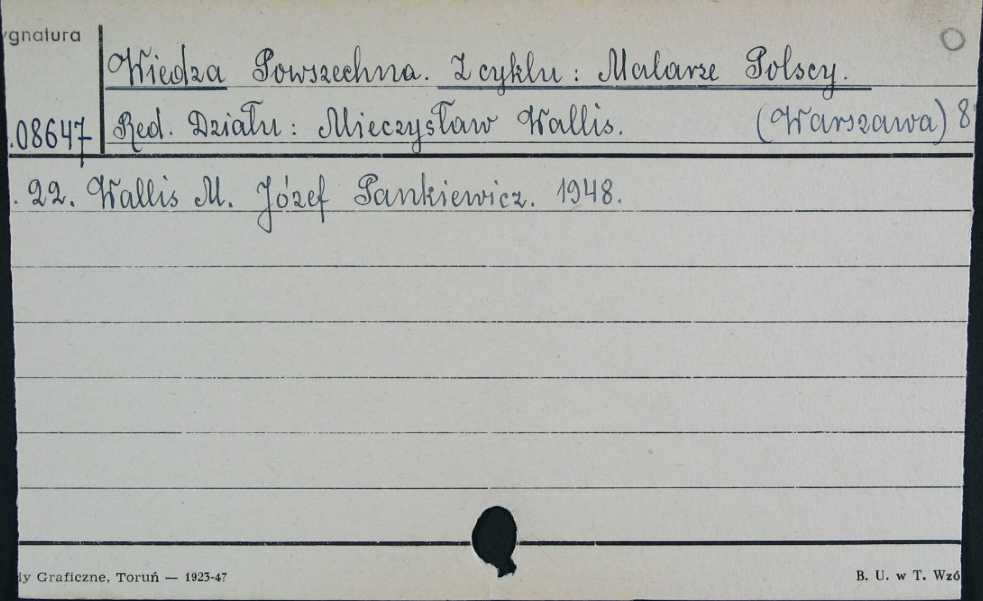 ygnatura
Wiedza Powszechna. Z cyklu: Malarze Polscy.
.08647 Red. Działu: Mieczysław Wallis. (Warszawa) 8
. 22. Wallis M. Józef Pankiewicz. 1948.
dy Graficzne, Toruń — 1923-47 B. U. w T. Wzó